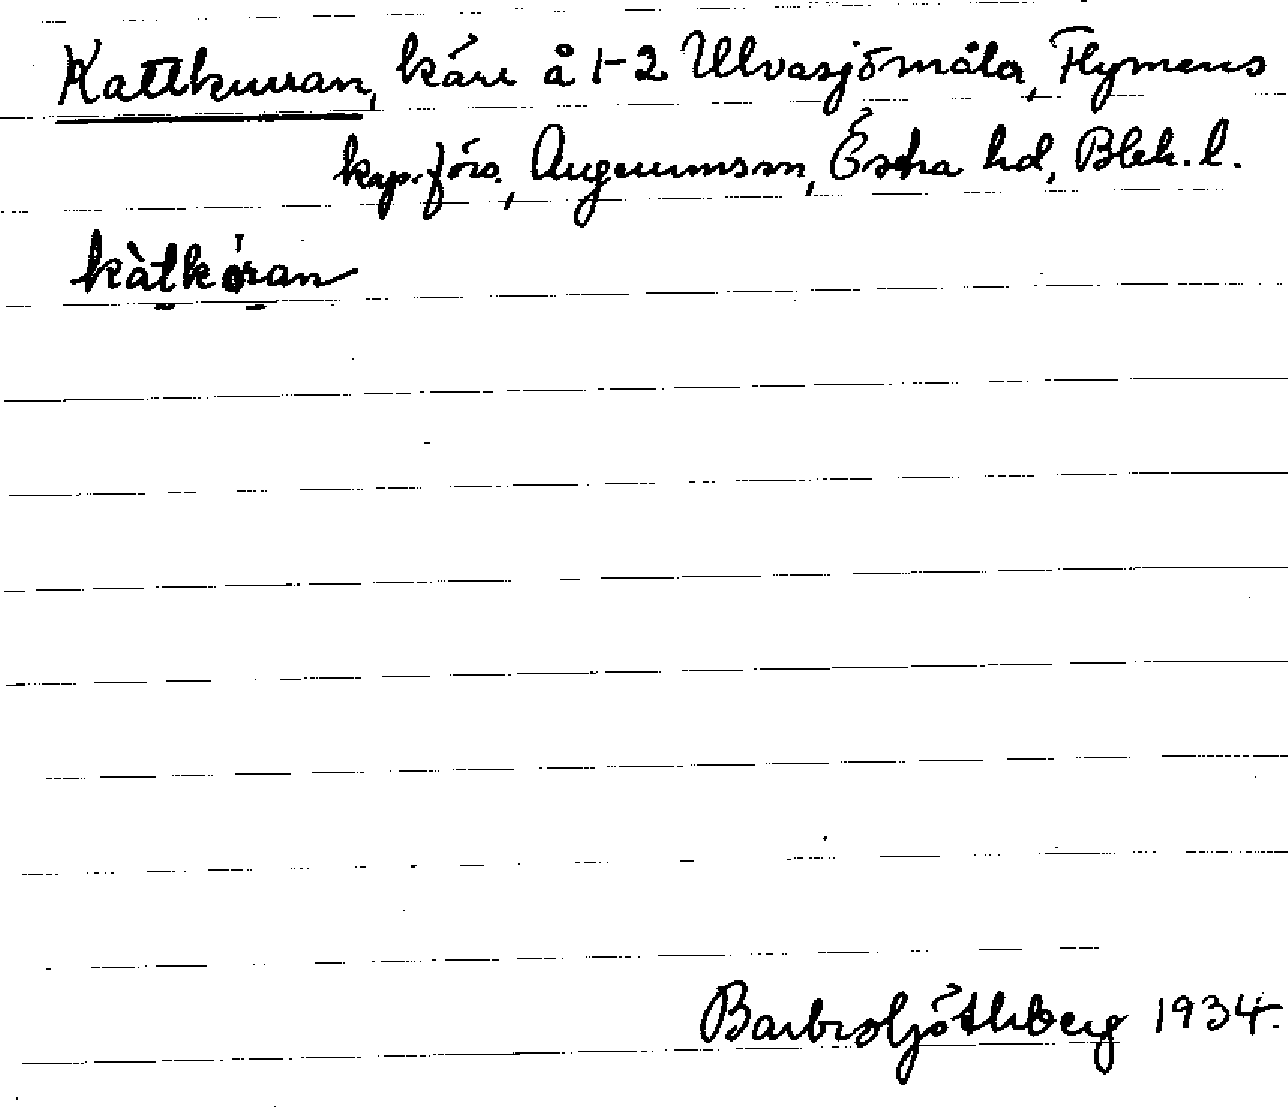 Kattkurran, kärr å 1-2 Ulvasjömåla, Flymens
kap.förs., Augerumssn, Östra hd, Blek. l.
kàtkøran
Barbro Götherberg 1934.